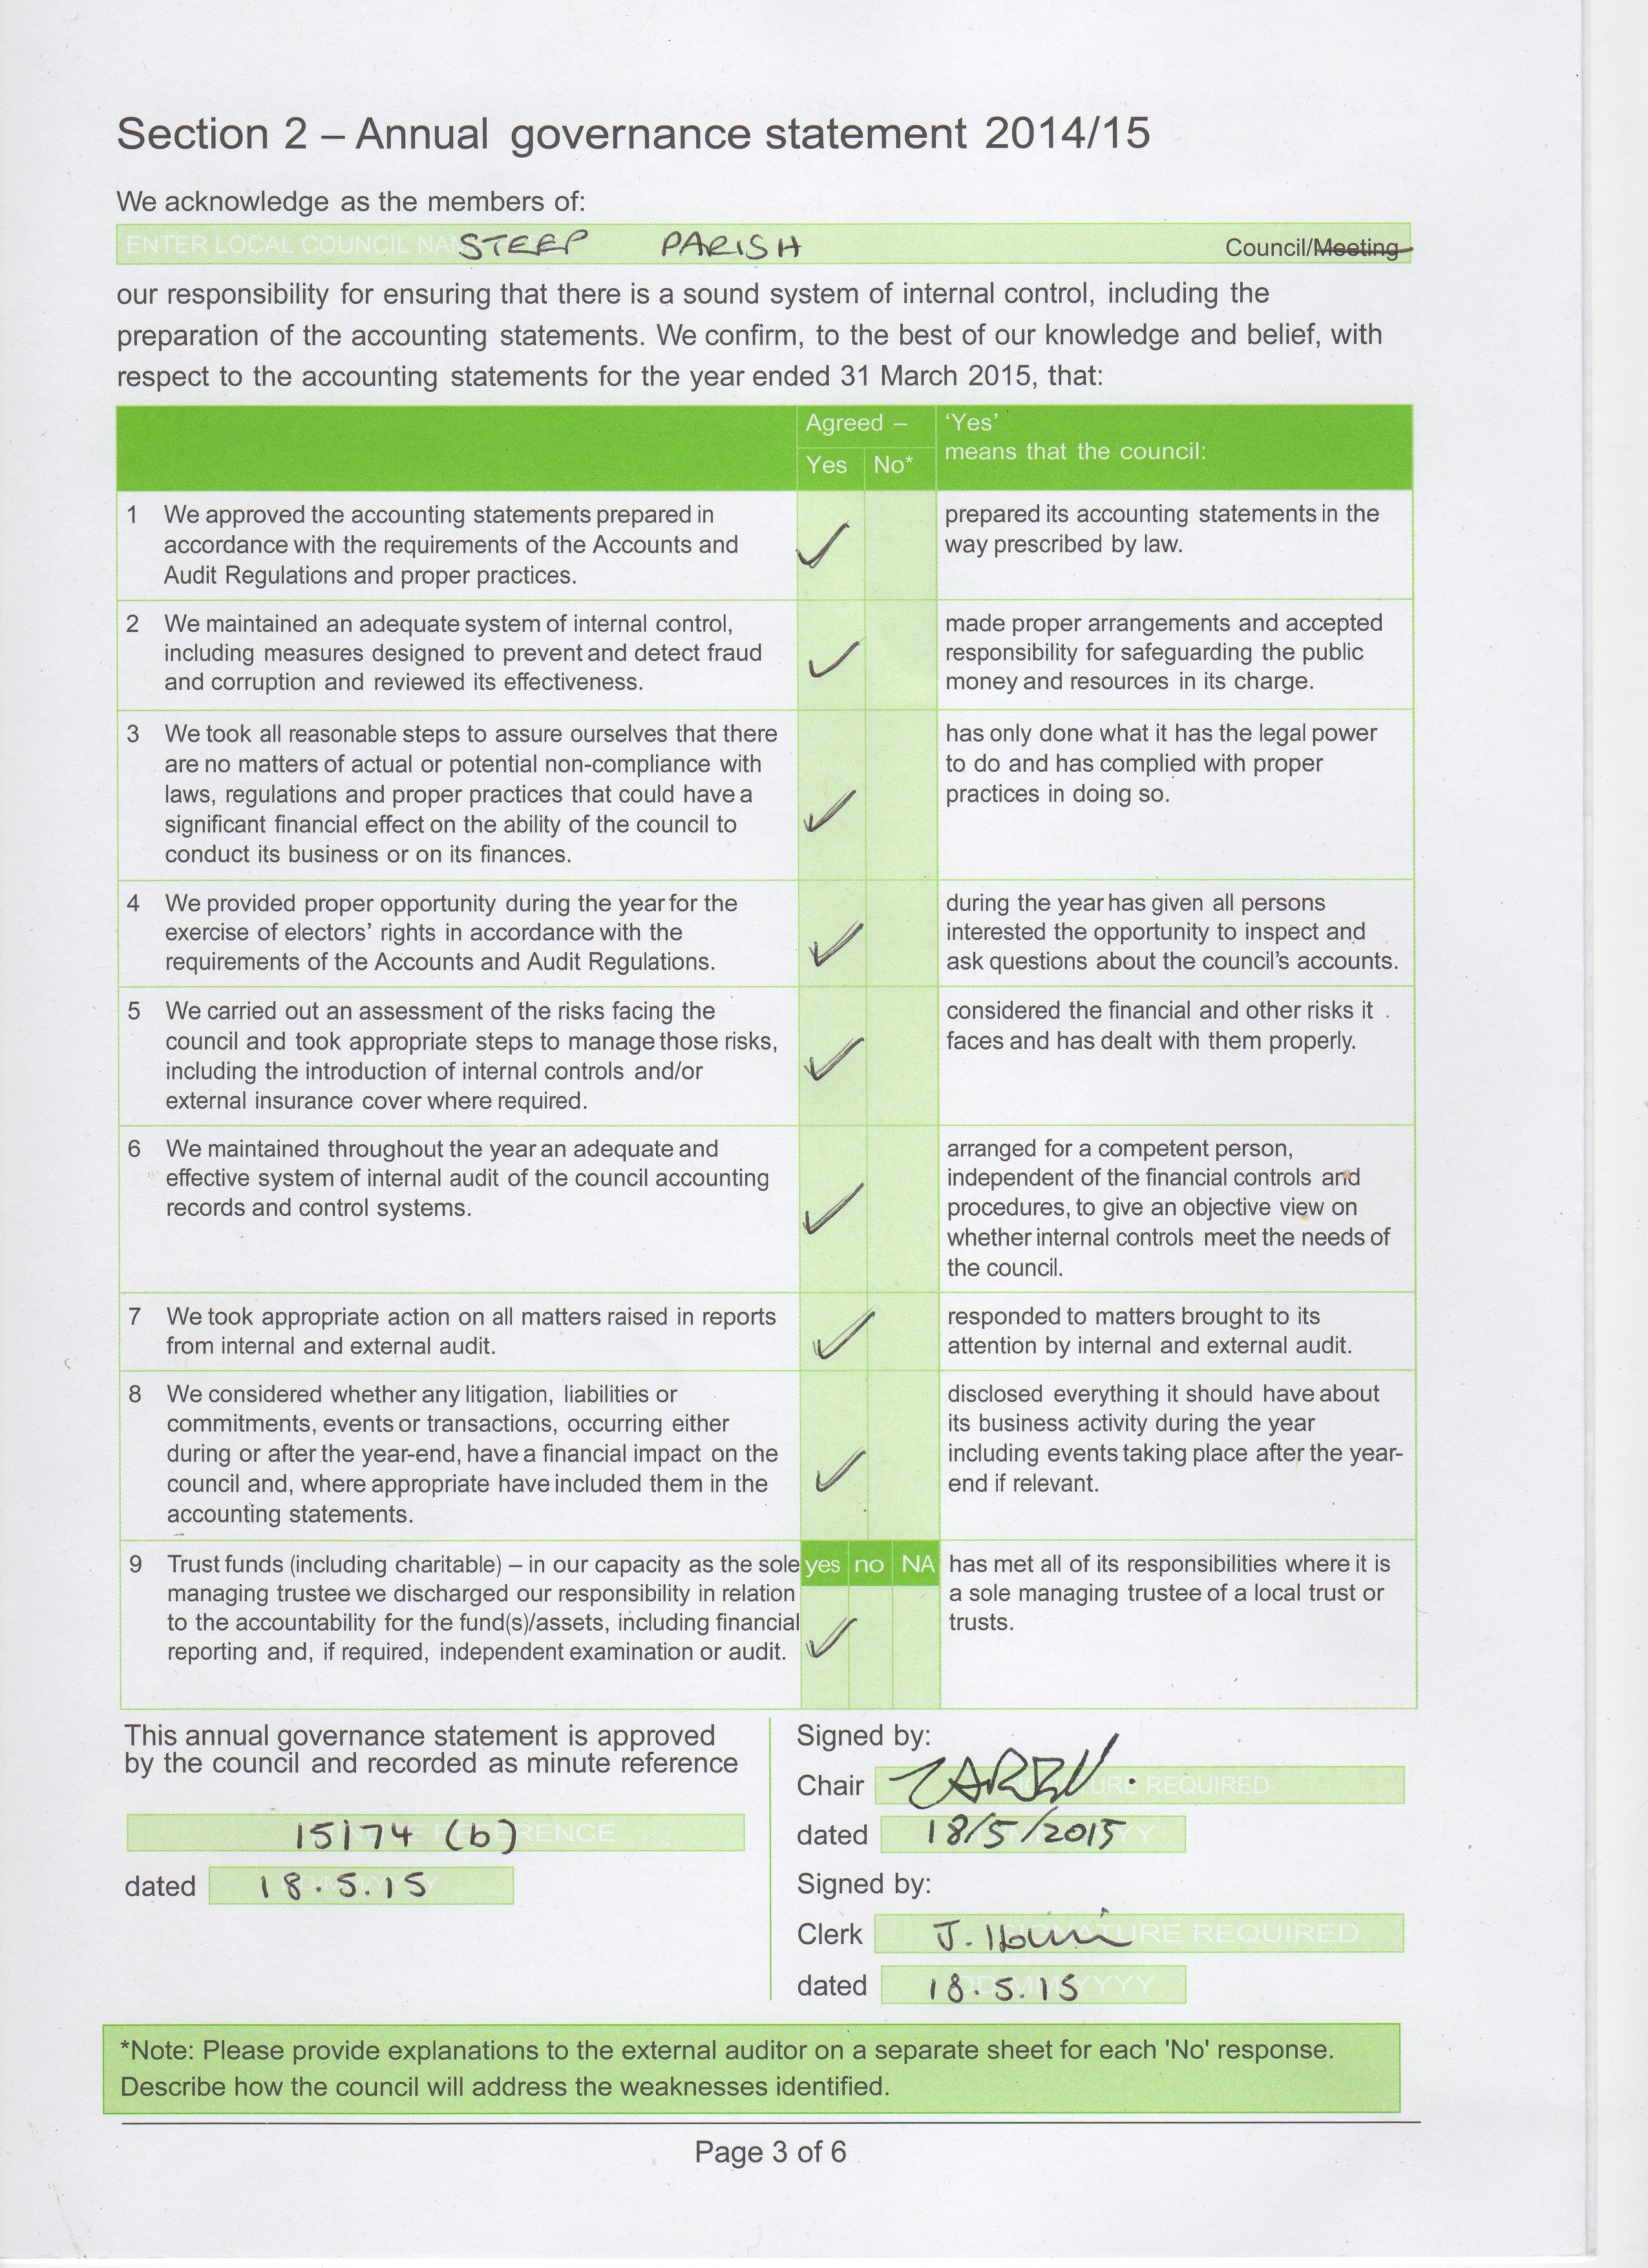 Section 2 – Annual governance statement 2014/15
We acknowledge as the members of:
STEEP PARISH Council/Meeting
our responsibility for ensuring that there is a sound system of internal control, including the
preparation of the accounting statements. We confirm, to the best of our knowledge and belief, with
respect to the accounting statements for the year ended 31 March 2015, that:
Agreed –
Yes No*
'Yes'
means that the council:
1 We approved the accounting statements prepared in
accordance with the requirements of the Accounts and
Audit Regulations and proper practices.
✓
prepared its accounting statements in the
way prescribed by law.
2 We maintained an adequate system of internal control,
including measures designed to prevent and detect fraud
and corruption and reviewed its effectiveness.
✓
made proper arrangements and accepted
responsibility for safeguarding the public
money and resources in its charge.
3 We took all reasonable steps to assure ourselves that there
are no matters of actual or potential non-compliance with
laws, regulations and proper practices that could have a
significant financial effect on the ability of the council to
conduct its business or on its finances.
✓
has only done what it has the legal power
to do and has complied with proper
practices in doing so.
4 We provided proper opportunity during the year for the
exercise of electors' rights in accordance with the
requirements of the Accounts and Audit Regulations.
✓
during the year has given all persons
interested the opportunity to inspect and
ask questions about the council's accounts.
5 We carried out an assessment of the risks facing the
council and took appropriate steps to manage those risks,
including the introduction of internal controls and/or
external insurance cover where required.
✓
considered the financial and other risks it
faces and has dealt with them properly.
6 We maintained throughout the year an adequate and
effective system of internal audit of the council accounting
records and control systems.
✓
arranged for a competent person,
independent of the financial controls and
procedures, to give an objective view on
whether internal controls meet the needs of
the council.
7 We took appropriate action on all matters raised in reports
from internal and external audit.
✓
responded to matters brought to its
attention by internal and external audit.
8 We considered whether any litigation, liabilities or
commitments, events or transactions, occurring either
during or after the year-end, have a financial impact on the
council and, where appropriate have included them in the
accounting statements.
✓
disclosed everything it should have about
its business activity during the year
including events taking place after the year-
end if relevant.
9 Trust funds (including charitable) – in our capacity as the sole
managing trustee we discharged our responsibility in relation
to the accountability for the fund(s)/assets, including financial
reporting and, if required, independent examination or audit.
yes no NA
✓
has met all of its responsibilities where it is
a sole managing trustee of a local trust or
trusts.
This annual governance statement is approved
by the council and recorded as minute reference
15174 (b)
dated 18.5.15
Signed by:
Chair SIGNATURE REQUIRED
dated 18/5/2015
Signed by:
Clerk J. SIGNATURE REQUIRED
dated 18.5.15
*Note: Please provide explanations to the external auditor on a separate sheet for each 'No' response.
Describe how the council will address the weaknesses identified.
Page 3 of 6